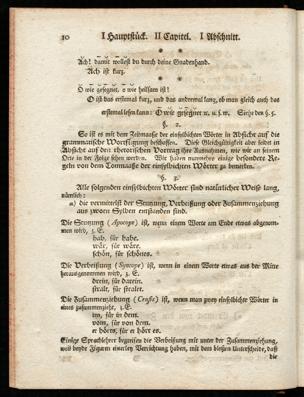 10 I Hauptstück. II Capitel. I Abschnitt.
Ach! damit wollest du durch deine Gnadenhand.
Ach ist kurz.
O wie gesegnet, o wie heilsam ist!
O ist das erstemal kurz, und das anderemal lang, ob man gleich auch das
erstemal lesen kann: O wie gesegnet u. s. f. w. Siehe den §. 5.
§. 2.
So ist es mit dem Zeitmaaße der einsylbichten Wörter in Absicht auf die
grammatische Wortfügung beschaffen. Diese Gleichgültigkeit aber leidet in
Absicht auf den rhetorischen Vortrag ihre Ausnahmen, wie wir an seinem
Orte in der Folge sehen werden. Wir haben nunmehro einige besondere Re-
geln von dem Tonmaaße der einsylbichten Wörter zu bemerken.
§. 3.
Alle folgenden einsylbichten Wörter sind natürlicher Weise lang,
nämlich:
a) die vermittelst der Stutzung, Verbeißung oder Zusammenziehung
aus zwoen Sylben entstanden sind.
Die Stutzung (Apocope) ist, wenn einem Worte am Ende etwas abgenom-
men wird, z. E.
hab, für habe.
wär, für wäre.
schön, für schönes.
Die Verbeißung (Syncope) ist, wenn in einem Worte etwas aus der Mitte
herausgenommen wird, z. E.
drein, für darein.
stralt, für stralet.
Die Zusammenziehung (Crasis) ist, wenn man zwey einsylbichte Wörter in
eines zusammenzieht, z. E.
im, für in dem.
vom, für von dem.
er hörts, für er hört es.
Einige Sprachlehrer begreifen die Verbeißung mit unter der Zusammenziehung,
weil beyde Figuren einerley Verrichtung haben, mit dem bloßen Unterscheide, daß
die